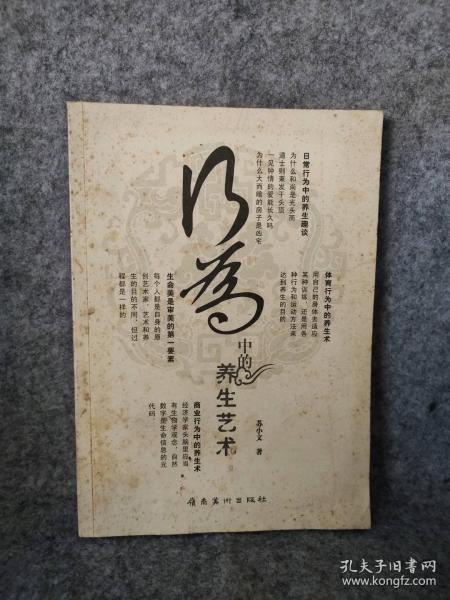 行为
中的
养生艺术
苏小文 著
日常行为中的养生趣谈
为什么和尚是光头而
道士则束发于头顶
一见钟情的爱能长久吗
为什么大而暗的房子是凶宅
体育行为中的养生术
用自己的身体去适应
某种训练，还是用各
种行为和运动方法来
达到养生的目的
生命美是审美的第一要素
每个人都是自身的原
创艺术家，艺术和养
生的目的不同，但过
程都是一样的
商业行为中的养生术
经济学家头脑里应当
有生物学观念，自然
数字是生命信息的元
代码。
岭南美术出版社
孔夫子旧书网
www.kongfz.com